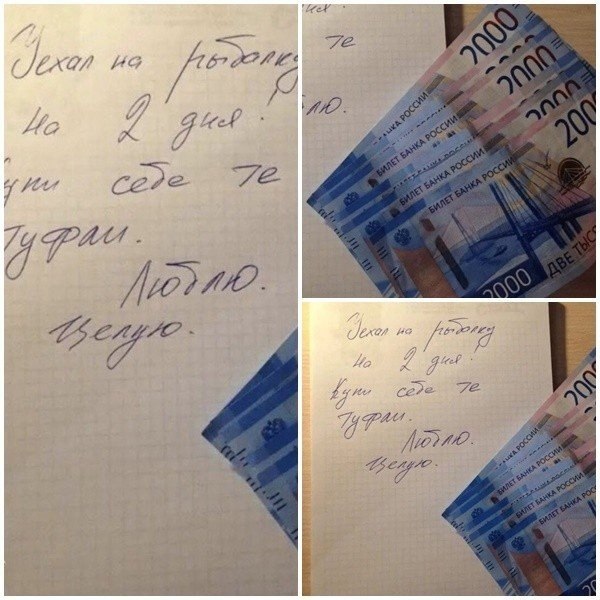 Уехал на рыбалку
на 2 дня!
купи себе те
туфли.
Люблю.
Целую.
те
лю.
2000
2000
2000
2000
БИЛЕТ БАНКА РОССИИ
БИЛЕТ БАНКА РОССИИ
БИЛЕТ БАНКА РОССИИ
ДВЕ ТЫСЯ
2000
Уехал на рыбалку
на 2 дня!
Купи себе те
туфли.
Люблю.
Целую.
2000
2000
БИЛЕТ БАНКА РОССИИ
БИЛЕТ БАНКА РОССИИ
БИЛЕТ БАНКА РОССИИ